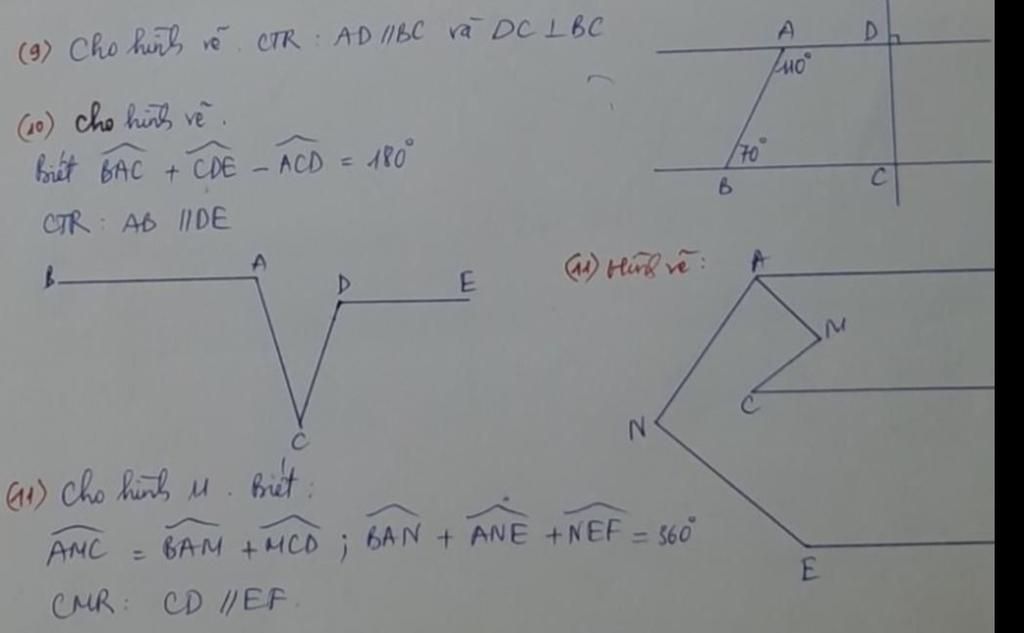 (9) Cho hình vẽ. CTR : AD // BC và DC ⊥ BC
A
D
110°
70°
B
C
(10) Cho hình vẽ.
Biết \widehat{BAC} + \widehat{CDE} - \widehat{ACD} = 180°
CTR : AB // DE
B
A
D
E
C
(11) Hình vẽ :
A
M
C
N
E
(11) Cho hình 11. Biết :
\widehat{AMC} = \widehat{BAM} + \widehat{MCD} ; \widehat{BAN} + \widehat{ANE} + \widehat{NEF} = 360°
CMR : CD // EF.